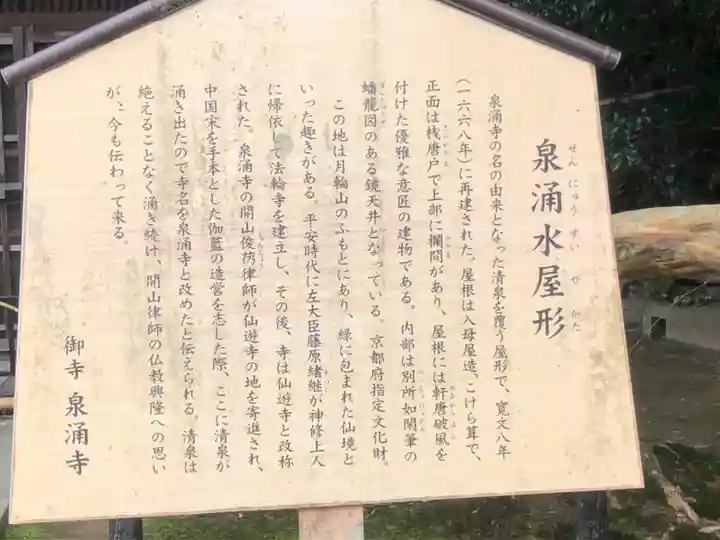 泉涌水屋形
せんにゅうすいやかた
泉涌寺の名の由来となった清泉を覆う屋形で、寛文八年
(一六六八年)に再建された。屋根は入母屋造、こけら葺で、
正面は桟唐戸で上部に欄間があり、屋根には軒唐破風を
付けた優雅な意匠の建物である。内部は別所如閑筆の
蟠龍図のある鏡天井となっている。京都府指定文化財。
この地は月輪山のふもとにあり、緑に包まれた仙境と
いった趣きがある。平安時代に左大臣藤原緒継が神修上人
に帰依して法輪寺を建立し、その後、寺は仙遊寺と改称
された。泉涌寺の開山俊芿律師が仙遊寺の地を寄進され、
中国宋を手本とした伽藍の造営を志した際、ここに清泉が
涌き出たので寺名を泉涌寺と改めたと伝えられる。清泉は
絶えることなく涌き続け、開山律師の仏教興隆への思い
が、今も伝わって来る。
御寺 泉涌寺